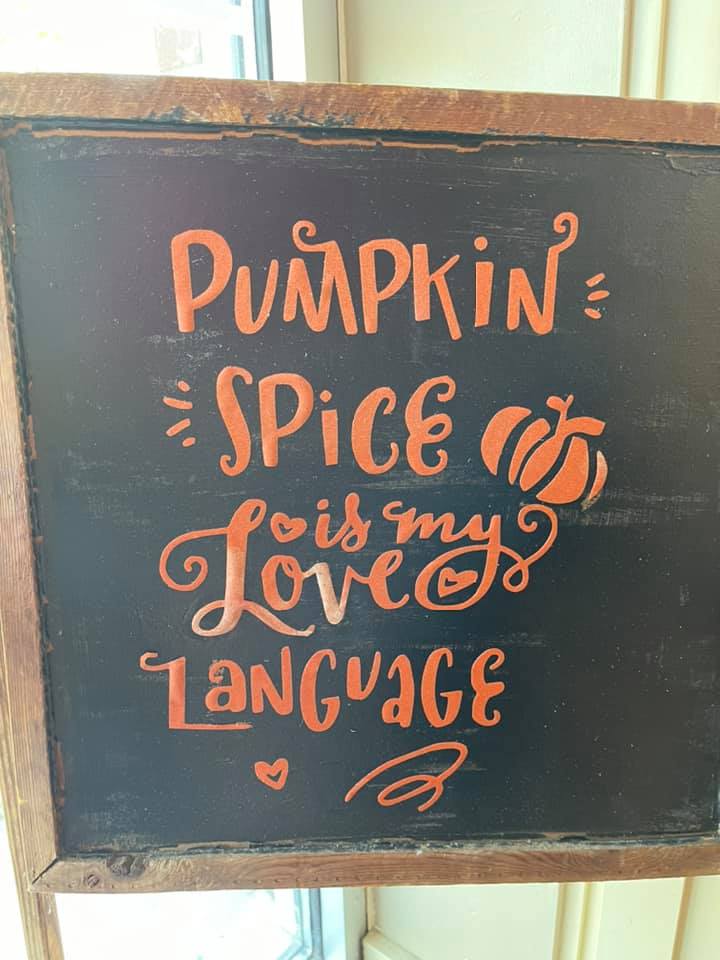 PUMPKiN
SPiCE
is my
Love
LaNGUaGE